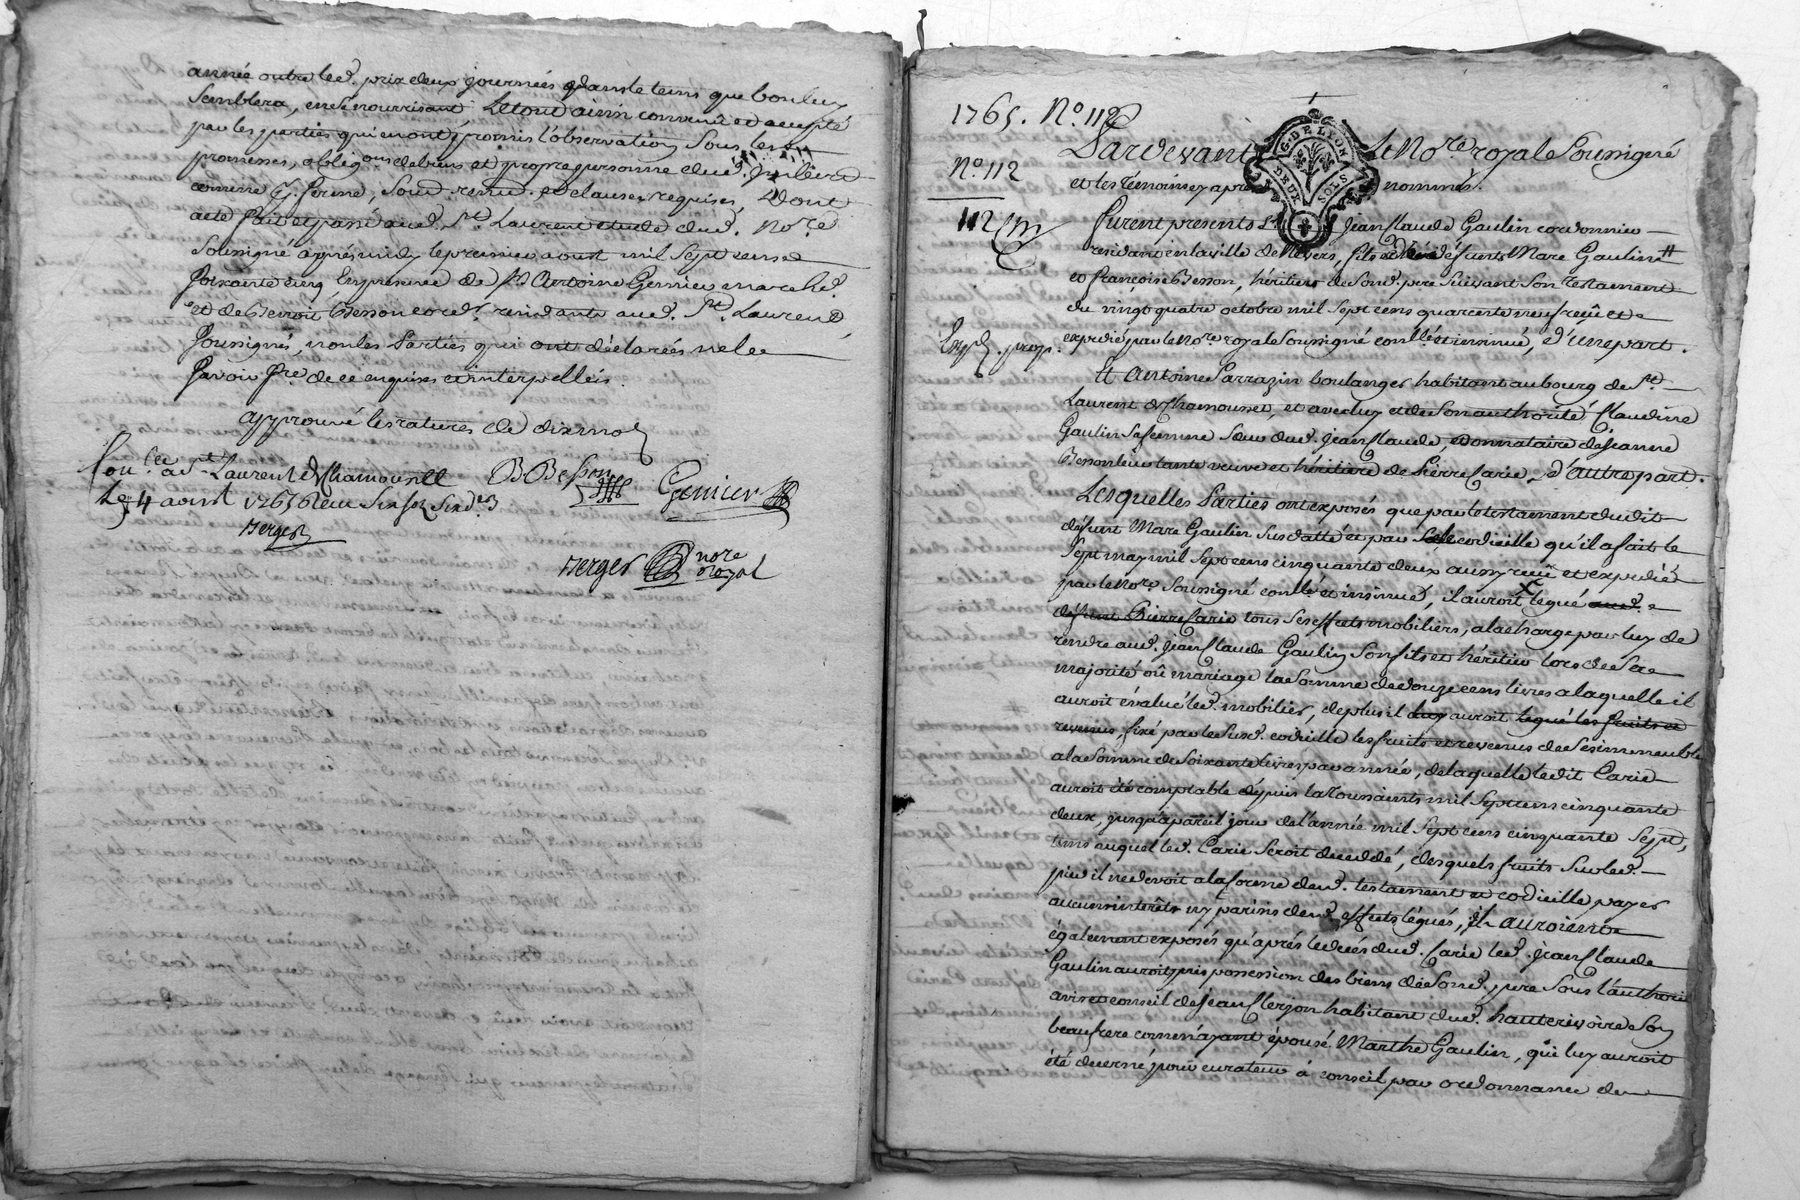 année outre led. prix deux journées dans le tems que bon luy
semblera, en se nourrissant Le tout ainsi convenû et accepté
par les parties qui en ont promis l'observation sous les
promesses, obligons de biens et propre personne dud.
comme fermé, soud. renond. et clauses requises, Dont
acte fait et passé aud. St. Laurent etude dud. Nore
soussigné après midy le premier aoust mil sept cens
soixante cinq, En presence de Sr Antoine Gennier march.
et de Benoit Besson cord. residants aud. St. Laurent
soussignés, non les Parties qui ont déclarés ne le
savoir fre. de ce enquises et interpellées.
approuvé les ratures de dix mots
Conllé a St Laurent de Chamousset
Le 4 aout 1765 Reçu six sols six ds
Berger
BBesson
Genier
Berger nore royal
1765. No. 112
No. 112
112
Exped. prop.
G. DE LYON
DEUX SOLS
Pardevant Le Nore. royal Soussigné
et les témoins cy apres nommés.
furent presents Sr. Jean Claude Gaulin cordonnier
residant en la ville de Nevers, fils défunts Marc Gaulin #
et françoise Besson, héritier de sond. pere suivant son Testament
du vingt quatre octobre mil sept cens quarente neuf reçû et
expedié par le Nore royal Soussigné conllé et insinué, d'une part.
Et Antoine Sarrazin boulanger habitant au bourg de St.
Laurent de Chamousset, et avec luy et de son authorité Claudine
Gaulin sa femme sœur dud. Jean Claude, et donnataire de Jeanne
Besson leur tante veuve et héritiere de Pierre Carie, d'autre part.
Lesquelles Parties ont exposés que par le testament dudit
défunt Marc Gaulin susdatté et par codicille qu'il a fait le
sept may mil sept cens cinquante deux aussy reçû et expedié
par le Nore. Soussigné conllé et insinué, il auroit legué aud.
défunt Pierre Carie tous ses effets mobiliers, a la charge par luy de
rendre aud. Jean Claude Gaulin son fils et héritier lors de sa
majorité oû mariage la somme de douze cens livres a laquelle il
auroit évalué led. mobilier, de plus il luy auroit legué les fruits et
revenus, fixé par le susd. codicille les fruits et revenus de ses immeubles
a la somme de soixante livres par année, de laquelle ledit Carie
auroit été comptable dépuis la Toussaints mil sept cens cinquante
deux, jusqu'a pareil jour de l'année mil sept cens cinquante sept,
tems auquel led. Carie seroit deceddé, desquels fruits sur led.
pied il ne devoit a la forme dud. testament et codicille payer
aucuns interêts ny par fins dud. effets légués, Ils auroient
également exposés qu'aprés le décés dud. Carie led. Jean Claude
Gaulin auroit pris possession des biens de sond. pere sous l'authorité
avis et conseil de Jean Clerjon habitant dud. hauterivoire son
beaufrere comme ayant épousé Marthe Gaulin, qui luy auroit
été decerné pour curateur à conseil par ordonnance de